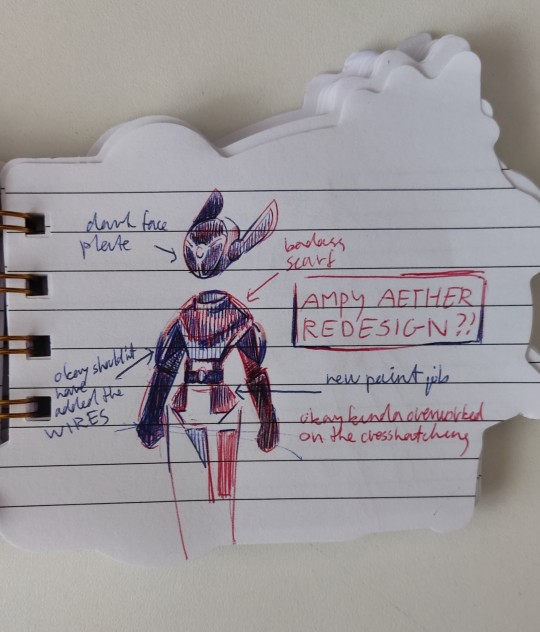 dark face
plate
badass
scarf
AMPY AETHER
REDESIGN?!
okay shouldn't
have
added the
WIRES
new paint job
okay kinda overworked
on the crosshatching